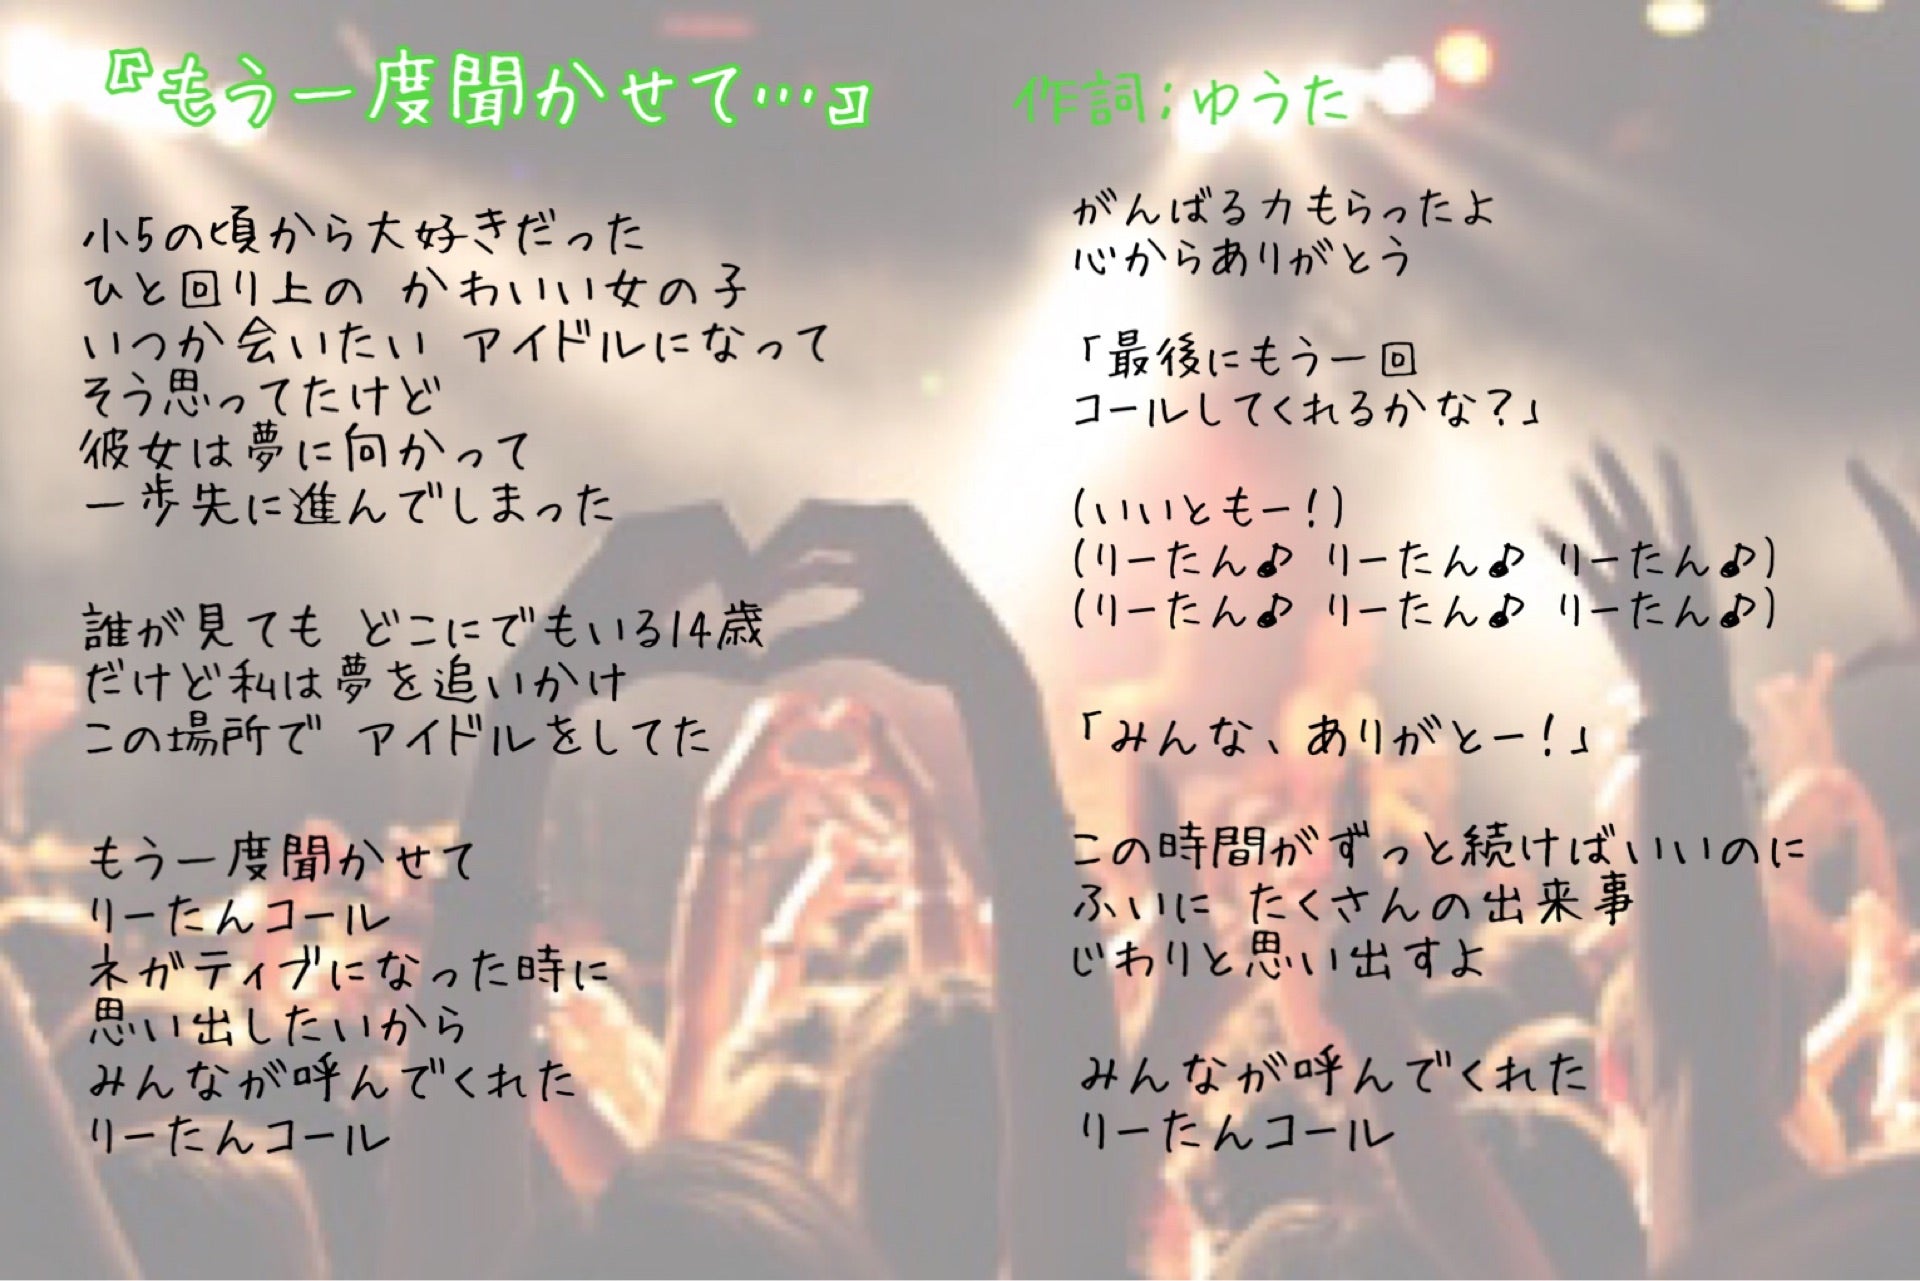 『もう一度聞かせて…』
作詞；ゆうた
小5の頃から大好きだった
ひと回り上の かわいい女の子
いつか会いたい アイドルになって
そう思ってたけど
彼女は夢に向かって
一歩先に進んでしまった
誰が見ても どこにでもいる14歳
だけど私は夢を追いかけ
この場所で アイドルをしてた
もう一度聞かせて
りーたんコール
ネガティブになった時に
思い出したいから
みんなが呼んでくれた
りーたんコール
がんばる力もらったよ
心からありがとう
「最後にもう一回
コールしてくれるかな？」
(いいともー！)
(りーたん♪ りーたん♪ りーたん♪)
(りーたん♪ りーたん♪ りーたん♪)
「みんな、ありがとー！」
この時間がずっと続けばいいのに
ふいに たくさんの出来事
じわりと思い出すよ
みんなが呼んでくれた
りーたんコール